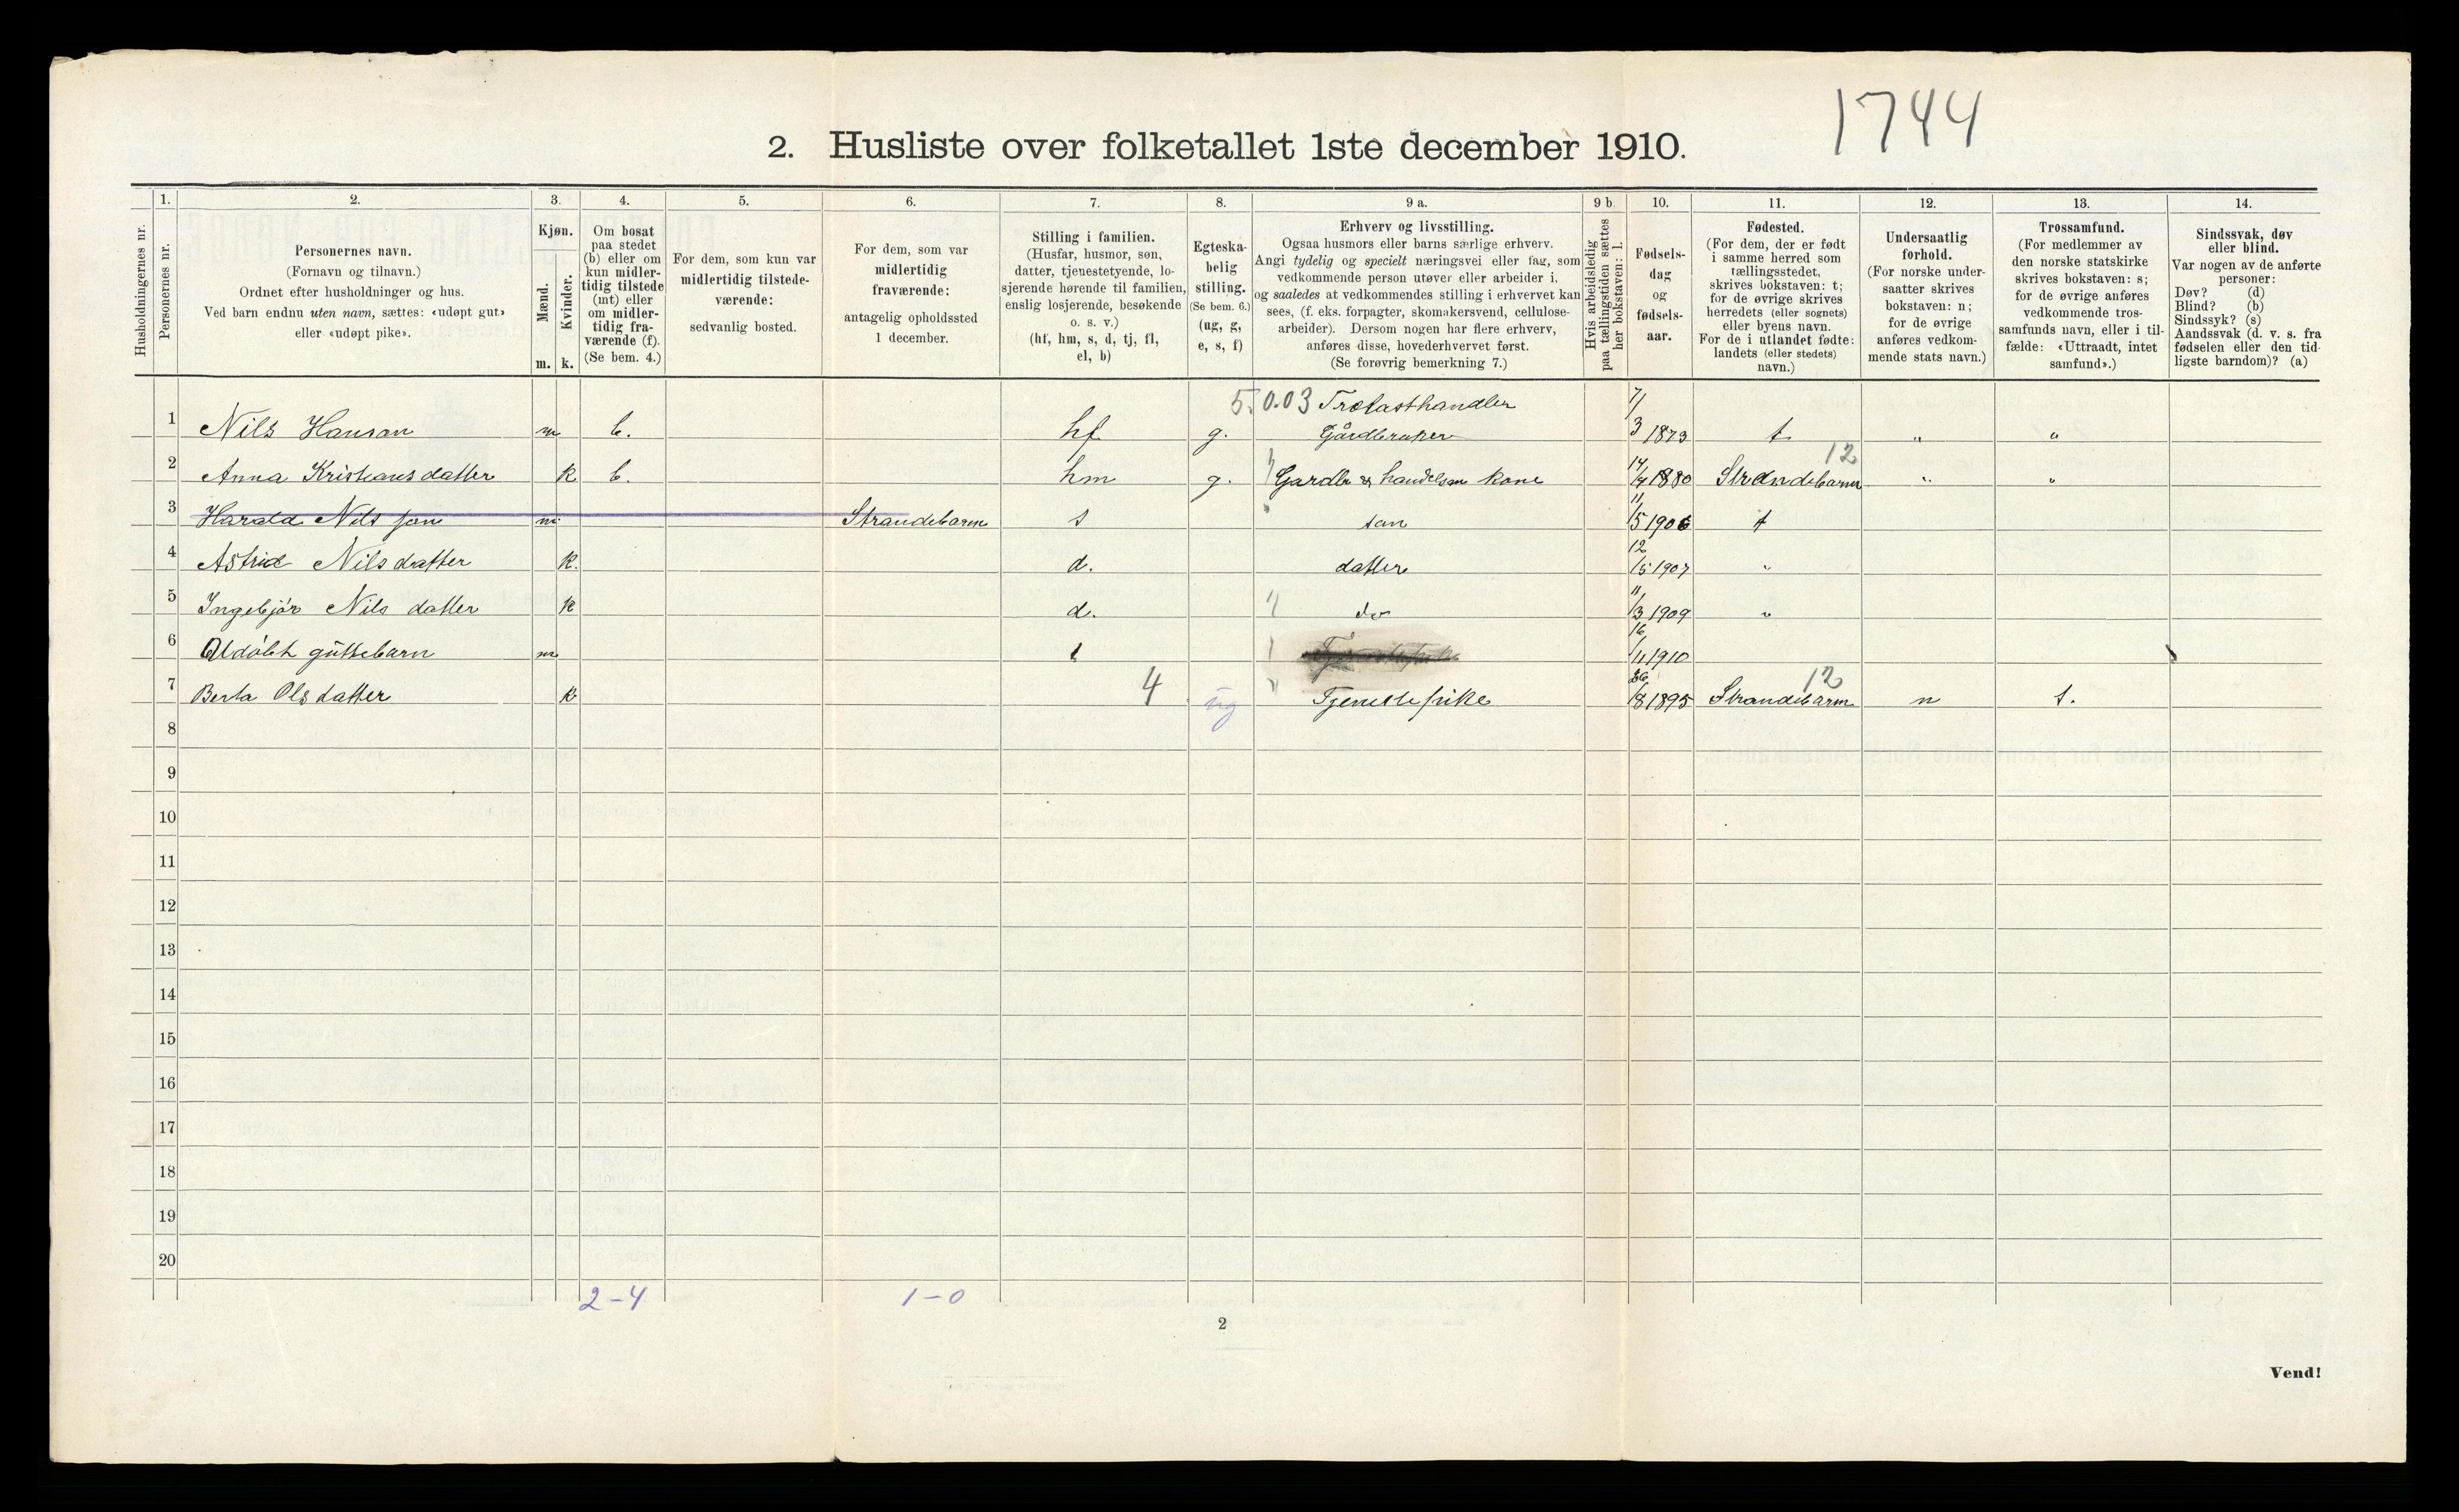 1744
2. Husliste over folketallet 1ste december 1910.
Husholdningernes nr.
1.
Personernes nr.
2.
Personernes navn.
(Fornavn og tilnavn.)
Ordnet efter husholdninger og hus.
Ved barn endnu uten navn, sættes: «udøpt gut»
eller «udøpt pike».
3.
Kjøn.
Mænd.
Kvinder.
m. k.
4.
Om bosat
paa stedet
(b) eller om
kun midler-
tidig tilstede
(mt) eller
om midler-
tidig fra-
værende (f).
(Se bem. 4.)
5.
For dem, som kun var
midlertidig tilstede-
værende:
sedvanlig bosted.
6.
For dem, som var
midlertidig
fraværende:
antagelig opholdssted
1 december.
7.
Stilling i familien.
(Husfar, husmor, søn,
datter, tjenestetyende, lo-
sjerende hørende til familien,
enslig losjerende, besøkende
o. s. v.)
(hf, hm, s, d, tj, fl,
el, b)
8.
Egteska-
belig
stilling.
(Se bem. 6.)
(ug, g,
e, s, f)
9 a.
Erhverv og livsstilling.
Ogsaa husmors eller barns særlige erhverv.
Angi tydelig og specielt næringsvei eller fag, som
vedkommende person utøver eller arbeider i,
og saaledes at vedkommendes stilling i erhvervet kan
sees, (f. eks. forpagter, skomakersvend, cellulose-
arbeider). Dersom nogen har flere erhverv,
anføres disse, hovederhvervet først.
(Se forøvrig bemerkning 7.)
9 b.
Hvis arbeidsledig
paa tællingstiden sættes
her bokstaven: l.
10.
Fødsels-
dag
og
fødsels-
aar.
11.
Fødested.
(For dem, der er født
i samme herred som
tællingsstedet,
skrives bokstaven: t;
for de øvrige skrives
herredets (eller sognets)
eller byens navn.
For de i utlandet fødte:
landets (eller stedets)
navn.)
12.
Undersaatlig
forhold.
(For norske under-
saatter skrives
bokstaven: n;
for de øvrige
anføres vedkom-
mende stats navn.)
13.
Trossamfund.
(For medlemmer av
den norske statskirke
skrives bokstaven: s;
for de øvrige anføres
vedkommende tros-
samfunds navn, eller i til-
fælde: «Uttraadt, intet
samfund».)
14.
Sindssvak, døv
eller blind.
Var nogen av de anførte
personer:
Døv? (d)
Blind? (b)
Sindssyk? (s)
Aandssvak (d. v. s. fra
fødselen eller den tid-
ligste barndom)? (a)
5. 0.03 Trælasthandler
1 Nils Hansan m b. hf g. Gårdbruker 7/3 1873 t " "
12
2 Anna Kristiansdatter k b. hm g. Gardbr & handelsm kone 14/4 1880 Strandebarm " "
3 Harald Nils son m Strandebarm s søn 11/5 1906 t
4 Astrid Nilsdatter k. d. datter 12/5 1907 "
5 Ingebjör Nils datter k d. do 11/3 1909 "
6 guttebarn m 16/11 1910
12
7 Berta Olsdatter k 4 ug Tjenestepike 26/8 1895 Strandebarm n s.
8
9
10
11
12
13
14
15
16
17
18
19
20
2-4 1-0
2
Vend!